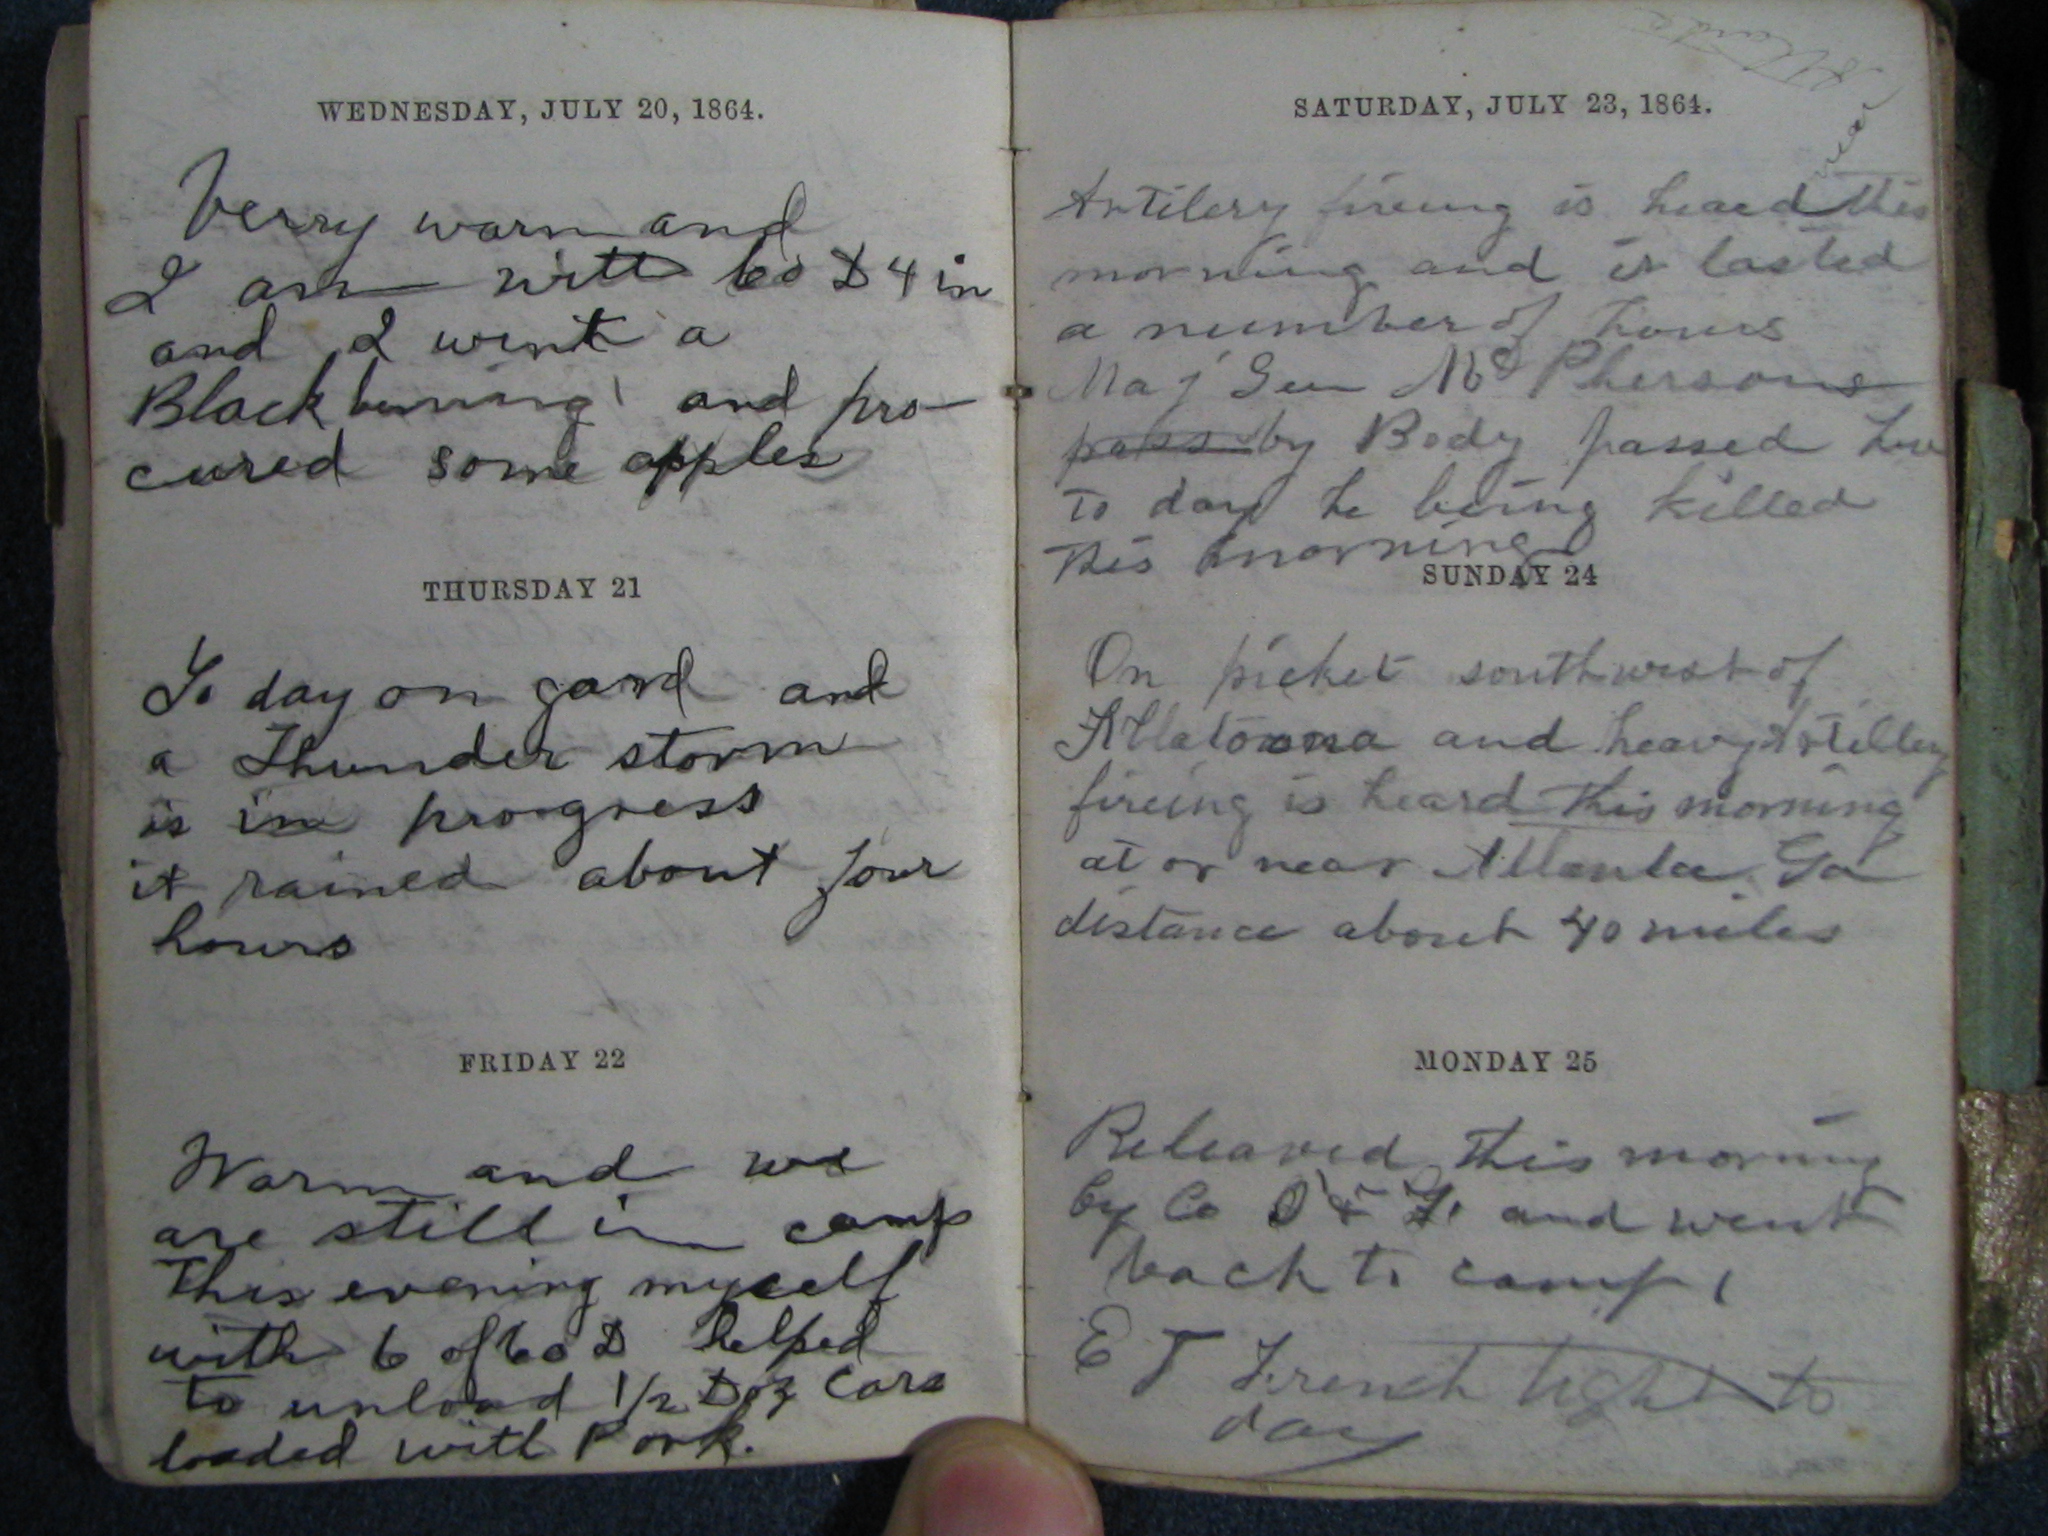 WEDNESDAY, JULY 20, 1864.
Verry warm and
I am with Co D 4 in
and I went a
Blackburring and pro-
cured some apples
THURSDAY 21
To day on gard and
a Thunder storm
is in progress
it rained about four
hours
FRIDAY 22
Warm and we
are still in camp
This evening myself
with 6 of Co D helped
to unload 1/2 Doz Cars
loaded with Pork.
near Atlanta
SATURDAY, JULY 23, 1864.
Artilery fireing is heard this
morning and it lasted
a number of hours
Maj Gen Mc Phersons
pass by Body passed here
to day he being killed
this morning
SUNDAY 24
On picket southwest of
Allatoona and heavy Artillery
fireing is heard this morning
at or near Atlanta Ga
distance about 40 miles
MONDAY 25
Releaved this morning
by Co D & F, and went
back to camp,
E T French tight to
day